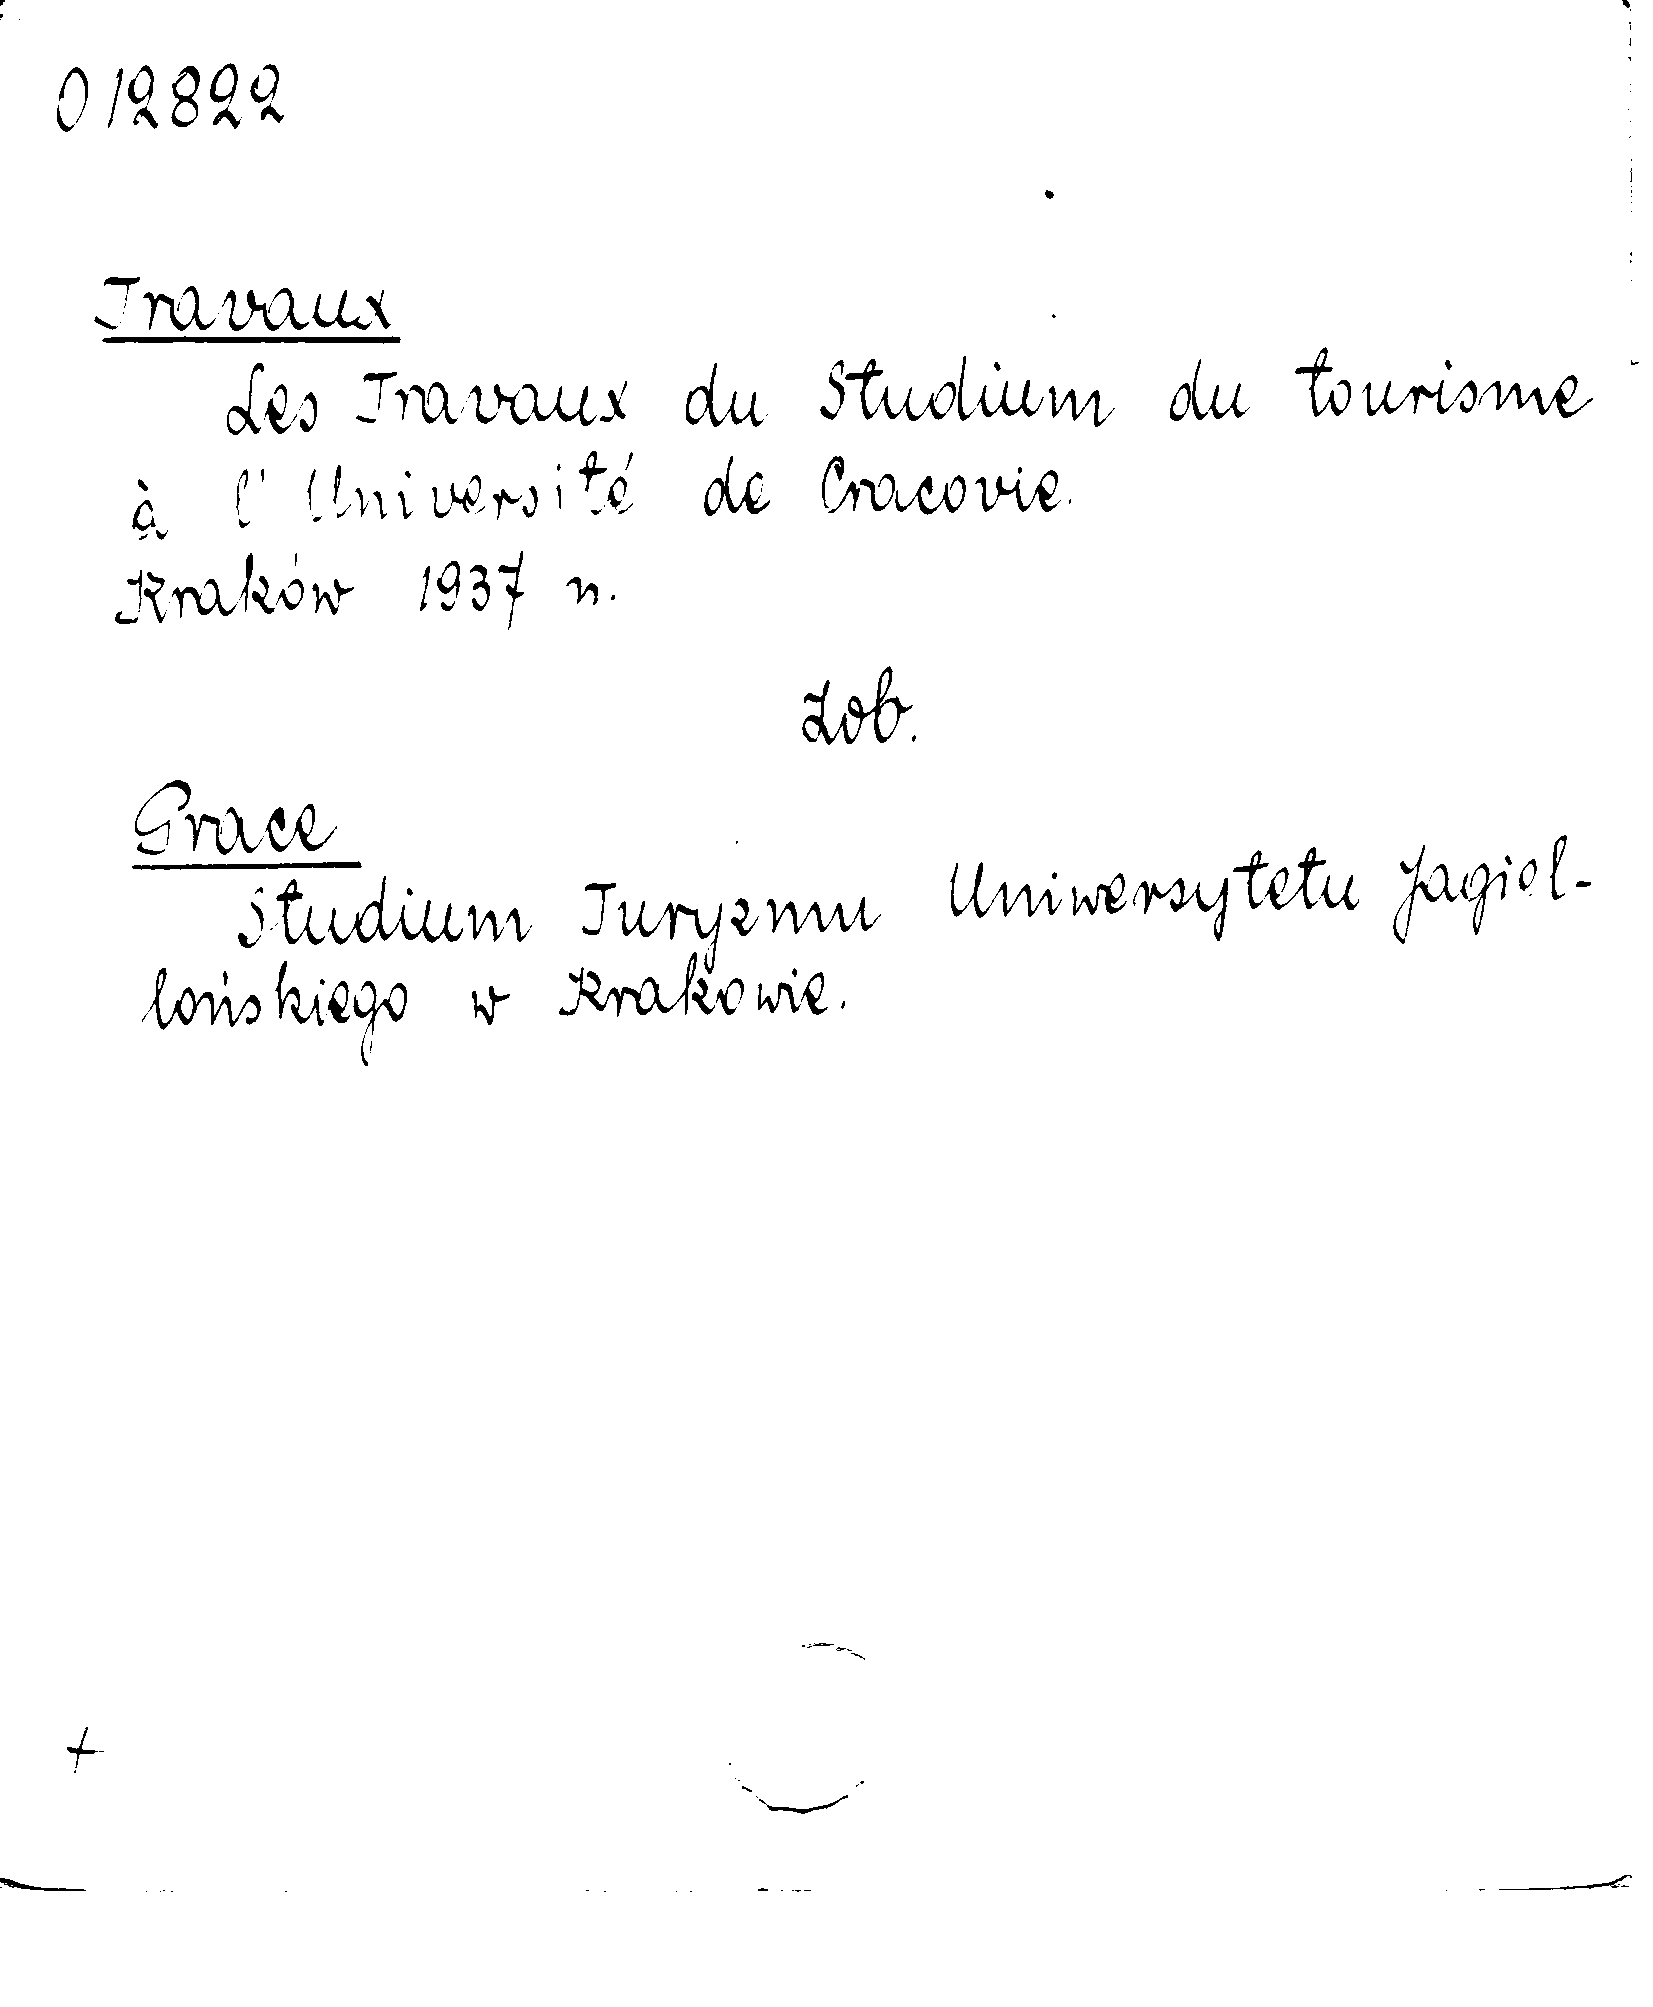 012822
Travaux
Les Travaux du Studium du tourisme
à l'Université de Cracovie.
Kraków 1937 n.
Zob.
Prace
Studium Turyzmu Uniwersytetu Jagiel-
lońskiego w Krakowie.
+